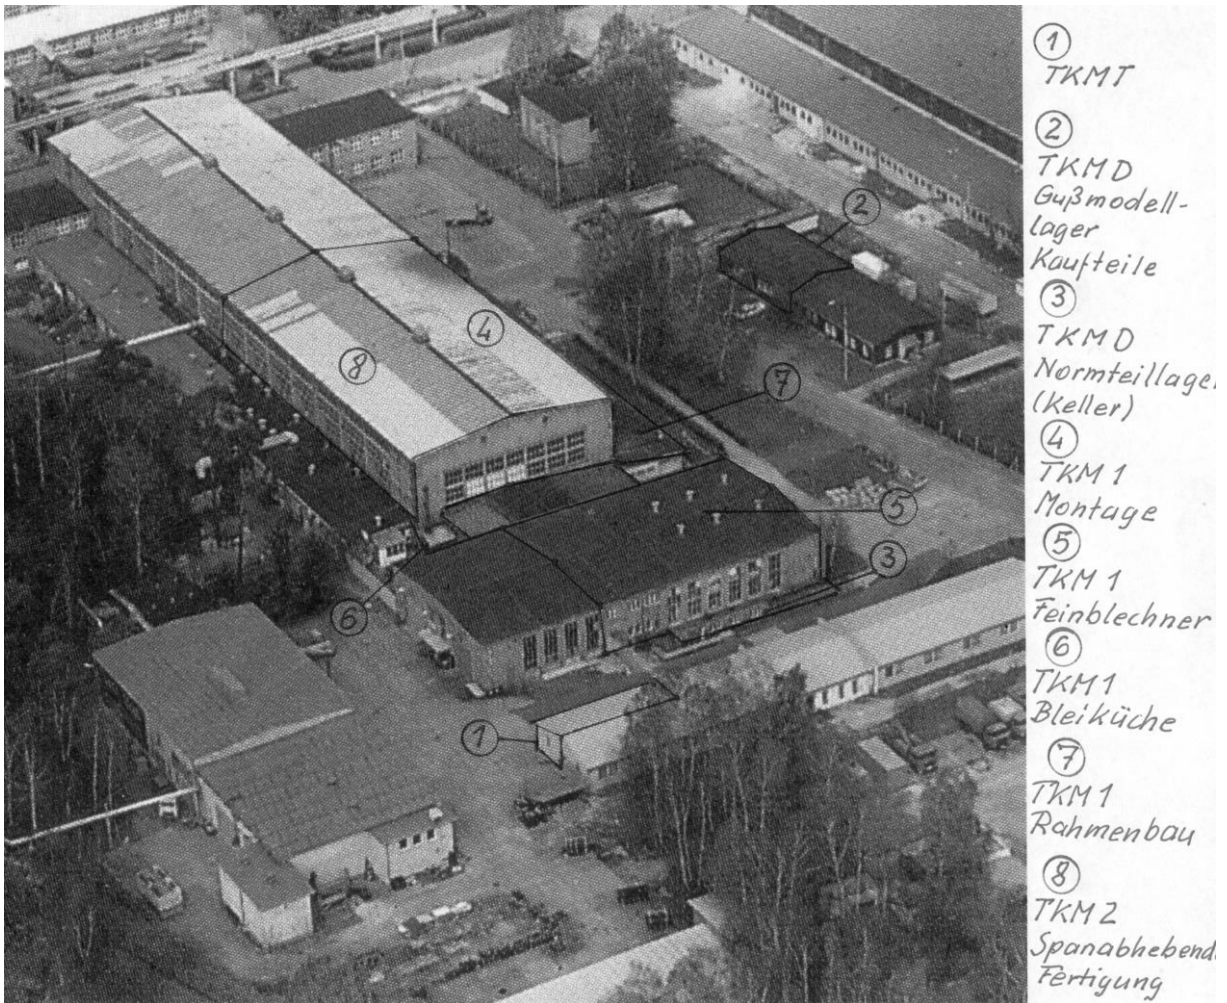 ①
TKMT
②
TKMD
Gußmodell-
lager
Kaufteile
③
TKMD
Normteillager
(Keller)
④
TKM 1
Montage
⑤
TKM 1
Feinblechner
⑥
TKM 1
Bleiküche
⑦
TKM 1
Rahmenbau
⑧
TKM 2
Spanabhebend
Fertigung
②
④
⑧
⑦
⑤
③
⑥
①